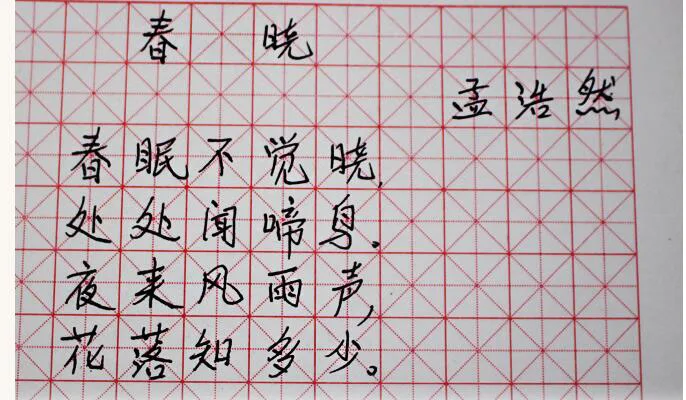 春晓
孟浩然
春眠不觉晓,
处处闻啼鸟.
夜来风雨声,
花落知多少。